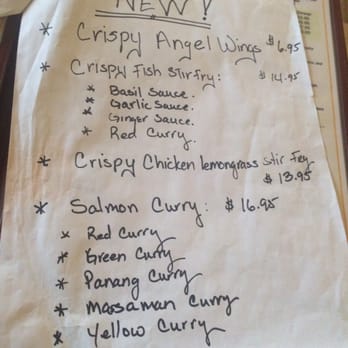 NEW!
* Crispy Angel Wings $6.95
* Crispy Fish Stirfry: $14.95
* Basil Sauce.
* Garlic Sauce.
* Ginger Sauce.
* Red Curry.
* Crispy Chicken lemongrass stir fry
$13.95
* Salmon Curry: $16.95
* Red Curry
* Green Curry
* Panang Curry
* Massaman Curry
* Yellow Curry